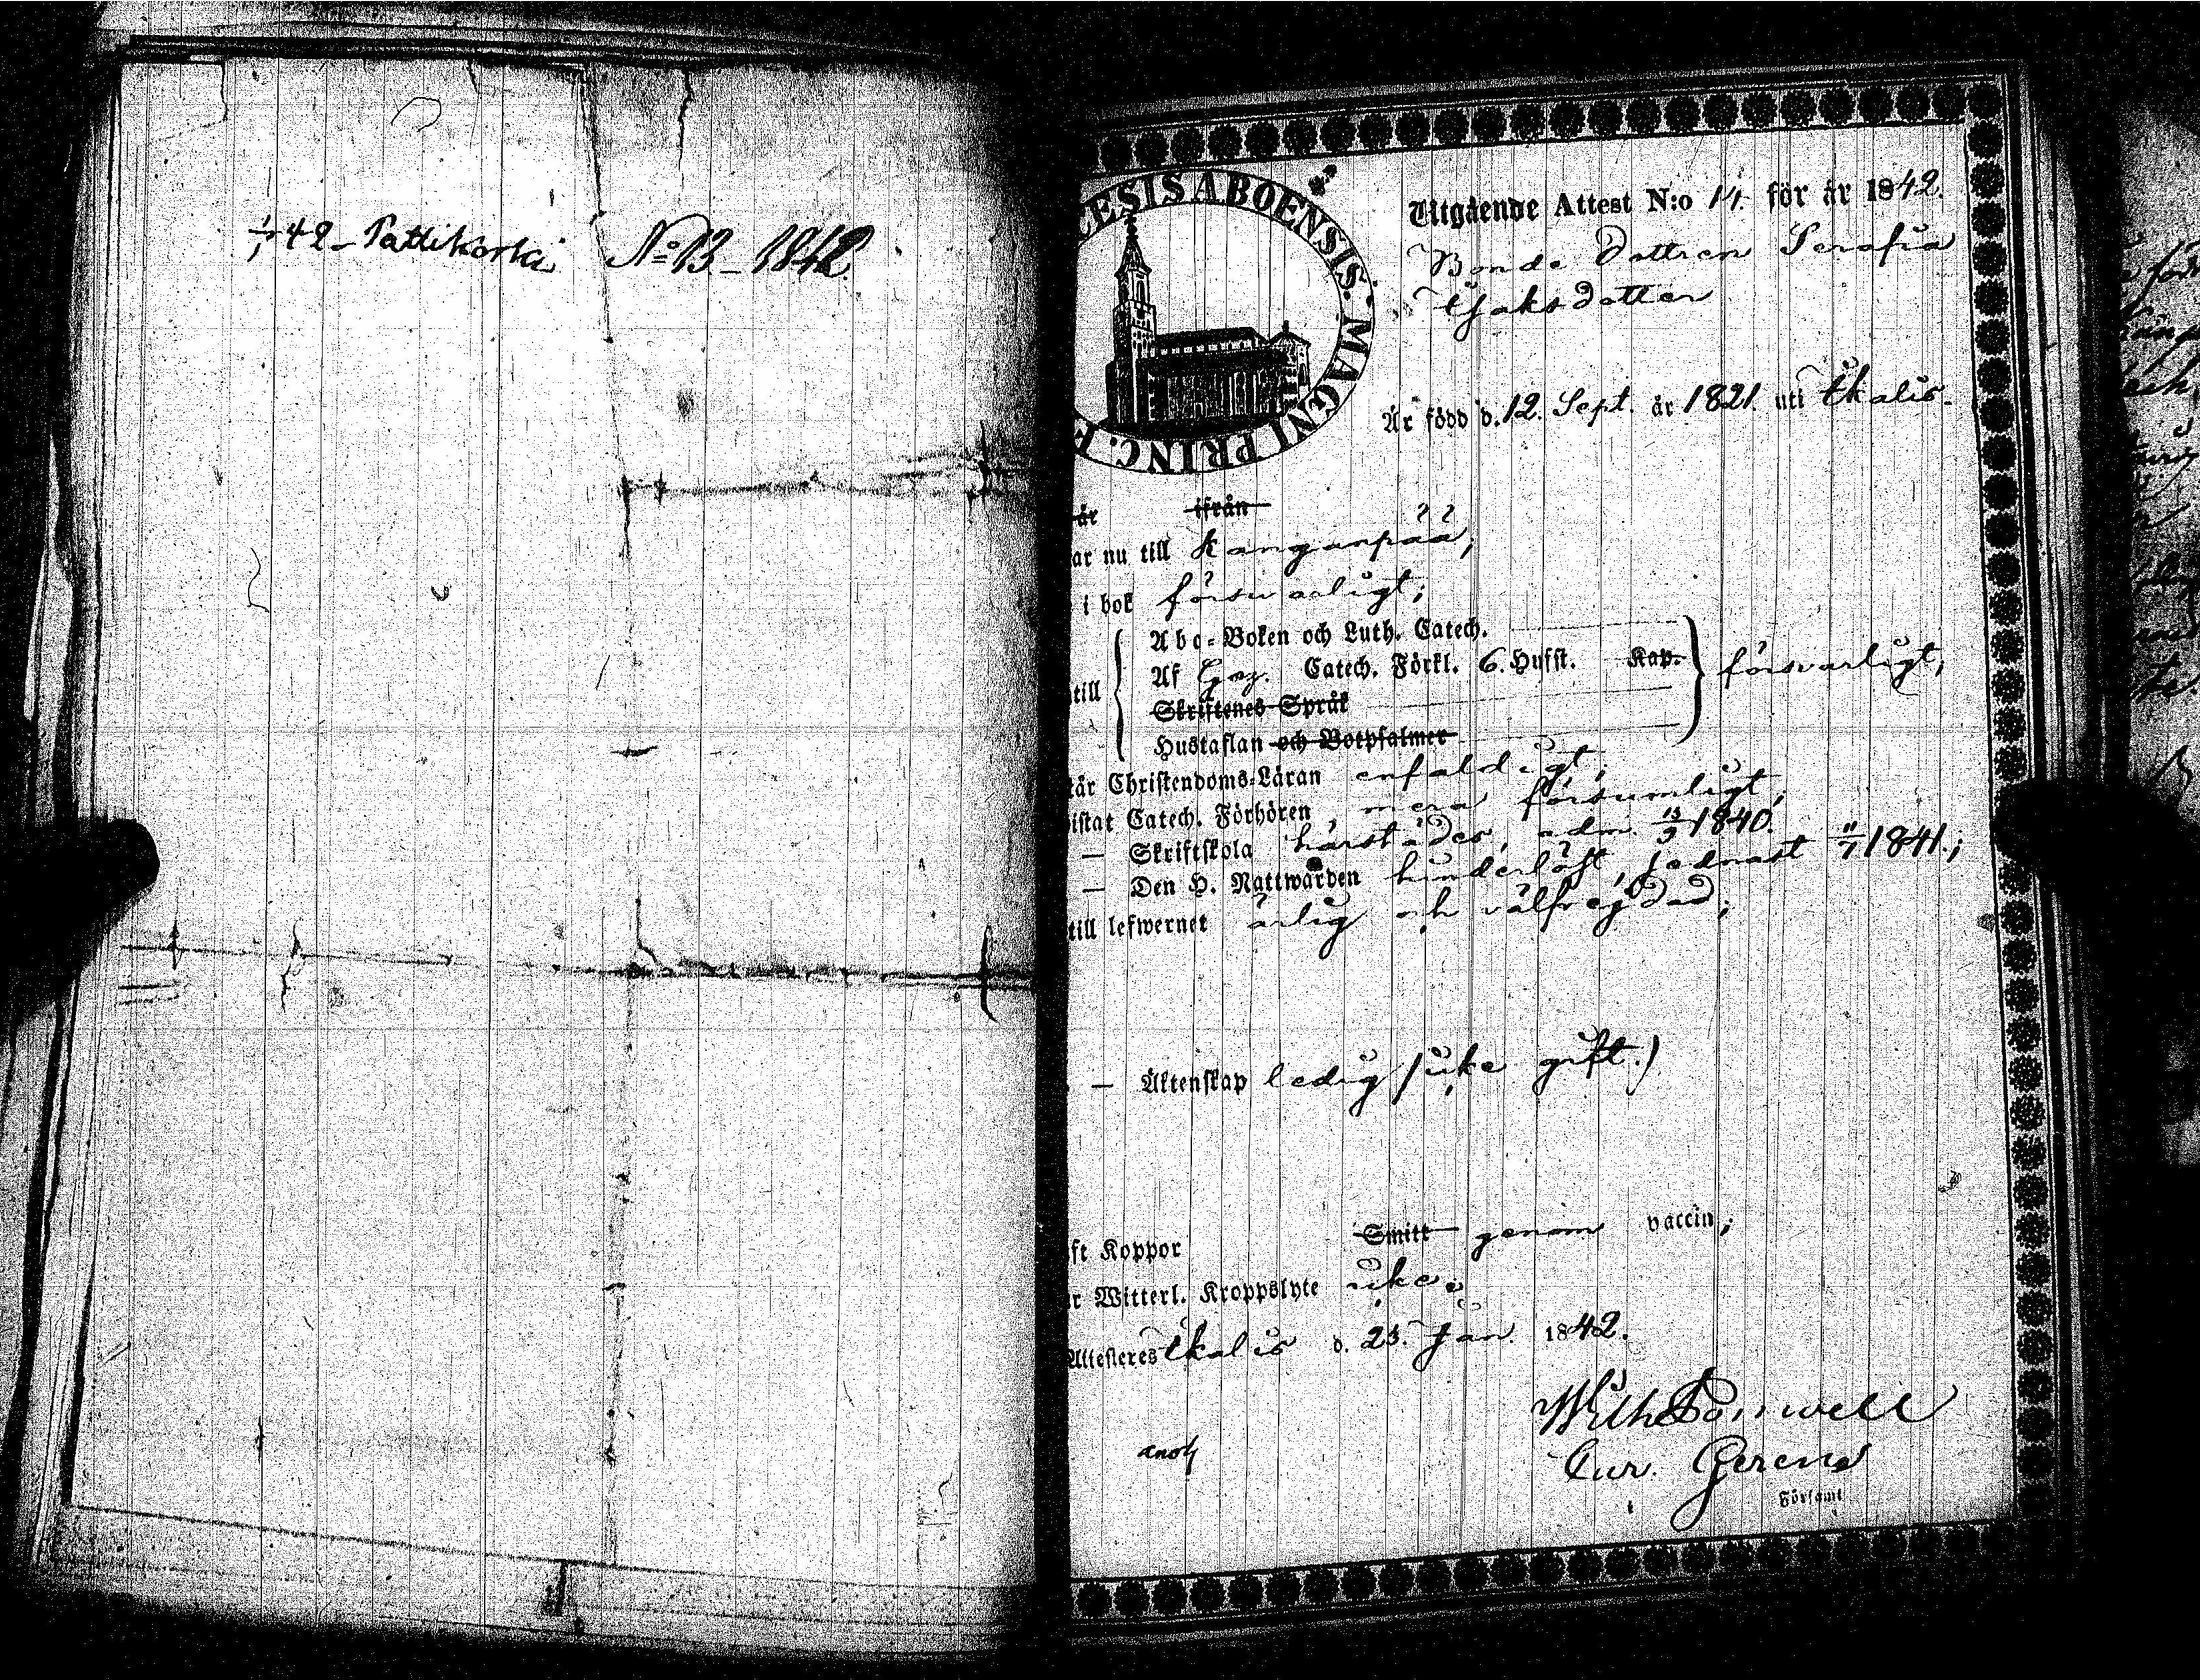 42 - Pattikorka N:o 13 - 1842.
ESIS ABOENSIS. MAGNI PRINC. F
Utgående Attest N:o 14. för år 1842.
Bonde Dottren Serafia
Isaks dotter
Är född d. 12. Sept. år 1821. uti Ikalis.
är ifrån
ar nu till Kanganpää,
i bok försvarligt;
Abc-Boken och Luth. Catech.
till Af Catech. Förkl. 6. Hufst. Kap. försvarligt,
Skriftenes Språk
Hustaflan och Botpsalmer
tår Christendoms-Läran enfaldigt;
istat Catech. Förhören mera försumligt,
— Skriftskola härstädes, adm. 1840.
— Den H. Nattwarden hinderlöst, sednast 11/7 1841.;
till lefwernet ärlig och välfrejdad;
— Äktenskap ledig (icke gift.)
ft Koppor Smitt genom vaccin;
r Witterl. Kroppslyte icke.
Attesteres Ikalis d. 23. Jan. 1842.
Wilh.
Cur. Gerens
Församl